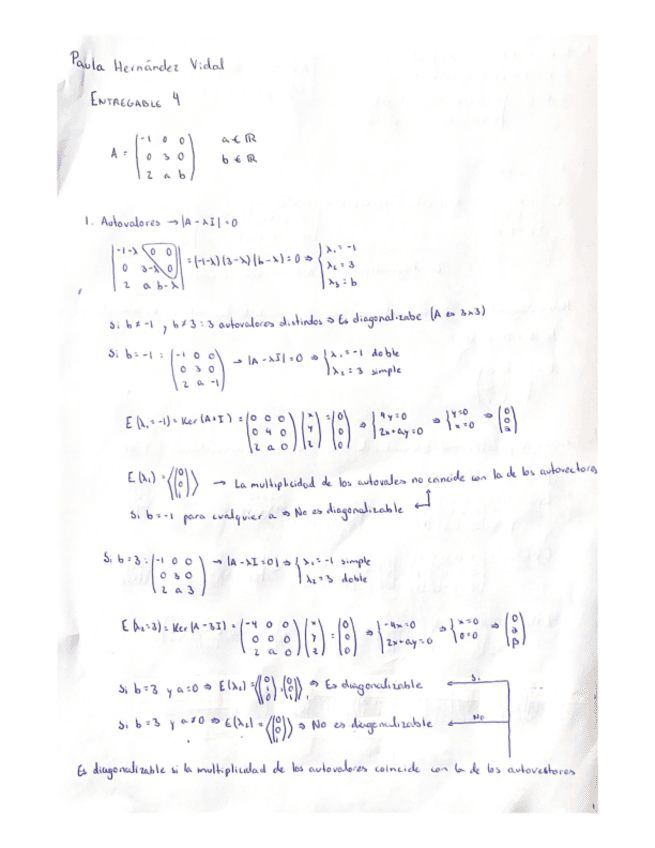 Paula Hernández Vidal
ENTREGABLE 4
A = (-1 0 0; 0 3 0; 2 a b) a ∈ ℝ b ∈ ℝ
1. Autovalores → |A - λI| = 0
|-1-λ 0 0; 0 3-λ 0; 2 a b-λ| = (-1-λ)(3-λ)(b-λ) = 0 ⇒ { λ₁ = -1; λ₂ = 3; λ₃ = b
Si b ≠ -1 y b ≠ 3 : 3 autovalores distintos ⇒ Es diagonalizabe (A es 3x3)
Si b = -1 : (-1 0 0; 0 3 0; 2 a -1) → |A - λI| = 0 ⇒ { λ₁ = -1 doble; λ₂ = 3 simple
E(λ₁ = -1) = Ker(A+I) = (0 0 0; 0 4 0; 2 a 0)(x; y; z) = (0; 0; 0) ⇒ { 4y = 0; 2x+ay = 0 ⇒ { y = 0; x = 0 ⇒
E(λ₁) = ⟨(0; 0; 1)⟩ → La multiplicidad de los autovales no coincide con la de los autovectores
Si b = -1 para cualquier a ⇒ No es diagonalizable
Si b = 3 : (-1 0 0; 0 3 0; 2 a 3) → |A - λI = 0| ⇒ { λ₁ = -1 simple; λ₂ = 3 doble
E(λ₂ = 3) = Ker(A - 3I) = (-4 0 0; 0 0 0; 2 a 0)(x; y; z) = (0; 0; 0) ⇒ { -4x = 0; 2x+ay = 0 ⇒ { x = 0; 0 = 0 ⇒ (0; a; β)
Si b = 3 y a = 0 ⇒ E(λ₂) = ⟨(0; 1; 0), (0; 0; 1)⟩ ⇒ Es diagonalizable ← Si
Si b = 3 y a ≠ 0 ⇒ E(λ₂) = ⟨(0; 0; 1)⟩ ⇒ No es diagonalizable ← No
Es diagonalizable si la multiplicidad de los autovalores coincide con la de los autovectores
1